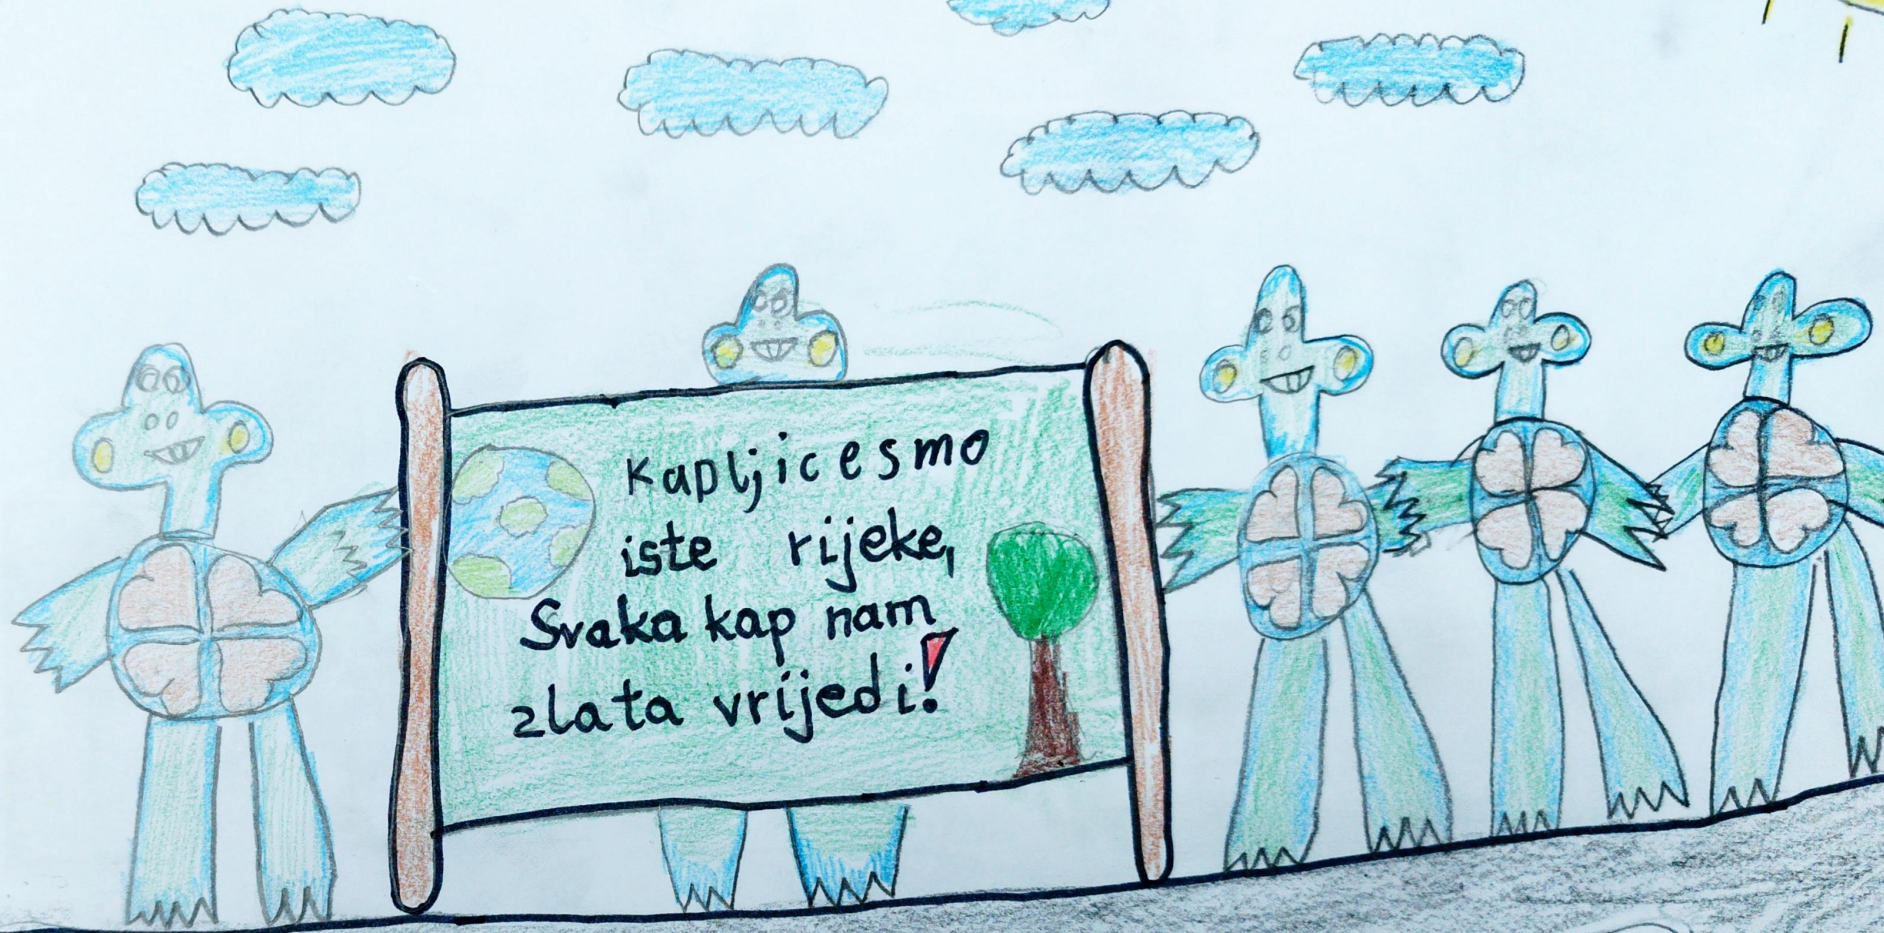 Kapljice smo
iste rijeke,
Svaka kap nam
zlata vrijedi!